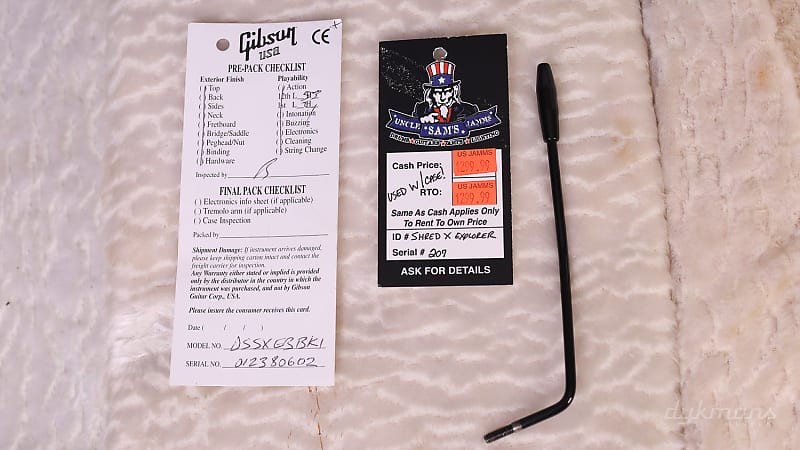 Gibson
USA
CE
PRE-PACK CHECKLIST
Exterior Finish
( ) Top
( ) Back
( ) Sides
( ) Neck
( ) Fretboard
( ) Bridge/Saddle
( ) Peghead/Nut
( ) Binding
( ) Hardware
Playability
( ) Action
12th L
1st L
( ) Intonation
( ) Buzzing
( ) Electronics
( ) Cleaning
( ) String Change
Inspected by
FINAL PACK CHECKLIST
( ) Electronics info sheet (if applicable)
( ) Tremolo arm (if applicable)
( ) Case Inspection
Packed by
Shipment Damage: If instrument arrives damaged,
please keep shipping carton intact and contact the
freight carrier for inspection.
Any Warranty either stated or implied is provided
only by the distributor in the country in which the
instrument was purchased, and not by Gibson
Guitar Corp., USA.
Please insure the consumer receives this card.
Date ( / / )
MODEL NO. DSSXEBBK1
SERIAL NO. 012380602
UNCLE SAM'S JAMMS
DRUMS GUITARS AMPS LIGHTING
Cash Price:
US JAMMS
1299.99
USED W/CASE!
RTO:
US JAMMS
1299.99
Same As Cash Applies Only
To Rent To Own Price
ID # SHRED X EXPLORER
Serial # 209
ASK FOR DETAILS
dykmans